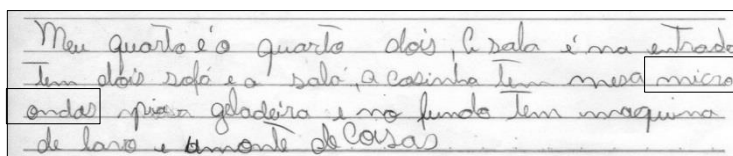 Meu quarto é o quarto dois, A sala é na entrada
tem dois sofá e a sala, a cosinha tem mesa micro
ondas pia geladeira e no fundo tem maquina
de lavo e amonte de cousas